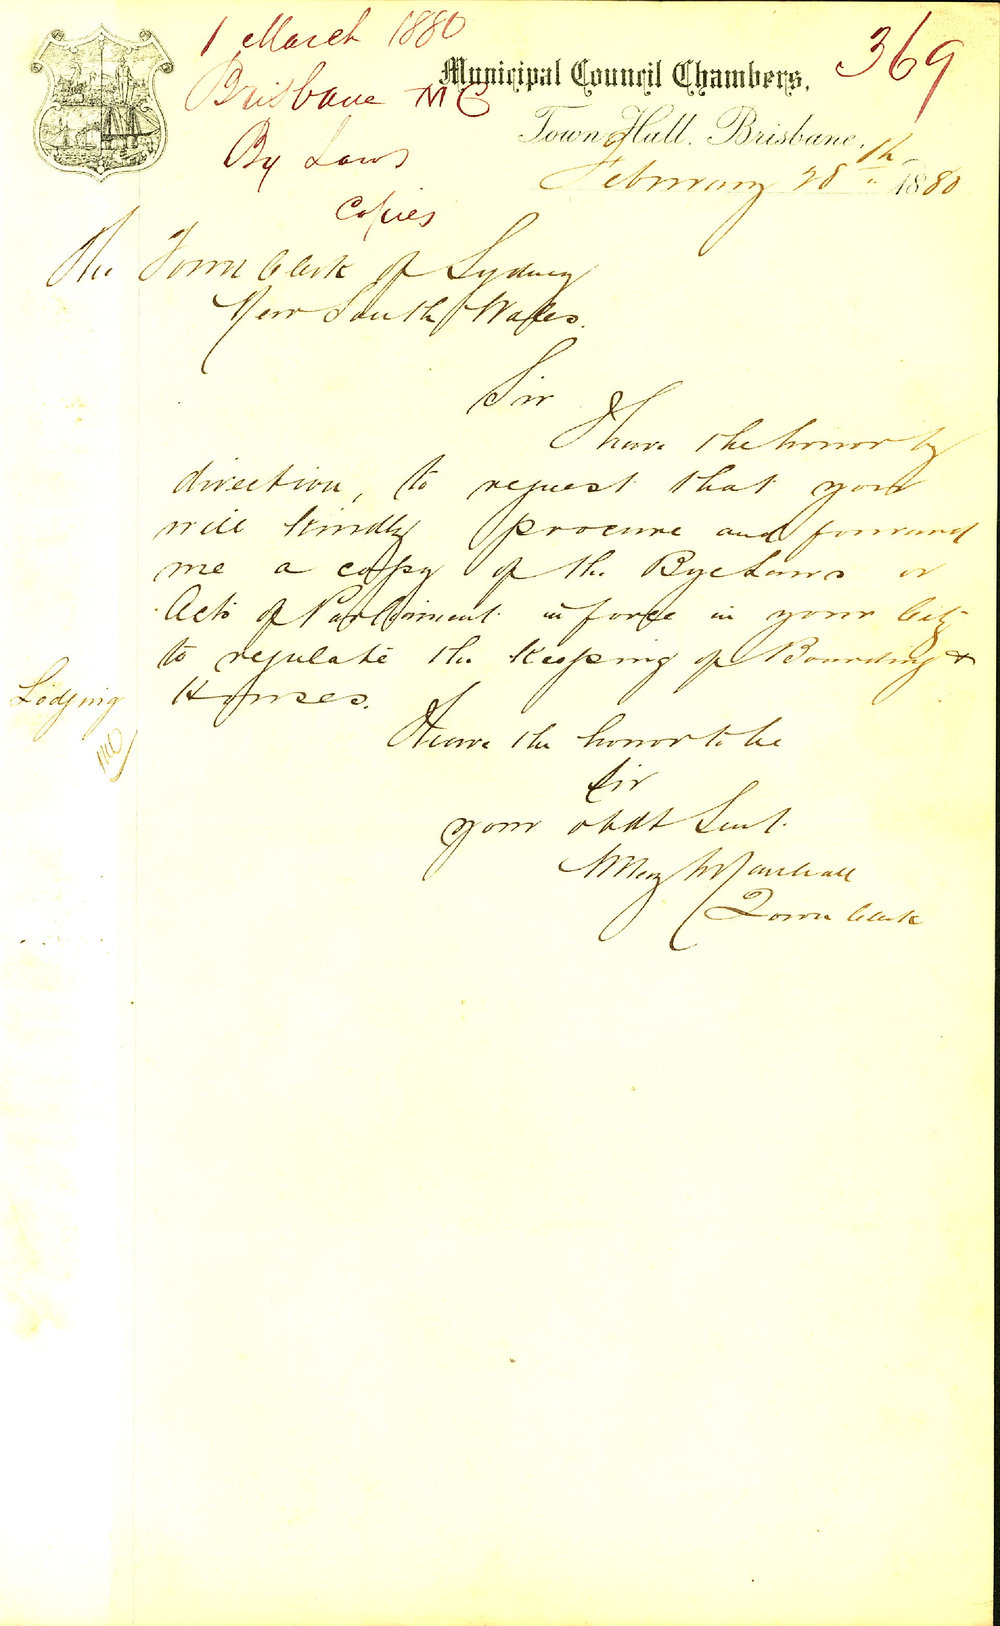 1 March 1880
Brisbane M C
By Laws
Copies
369
Municipal Council Chambers,
Town Hall, Brisbane,
February 28th 1880
The Town Clerk of Sydney
New South Wales.
Sir
I have the honor by
direction, to request that you
will kindly procure and forward
me a copy of the Bye Laws or
Acts of Parliament in force in your City
to regulate the Keeping of Boarding &
Lodging Houses.
I have the honor to be
Sir
your obdt Servt.
Wm Hy Marshall
Town Clerk